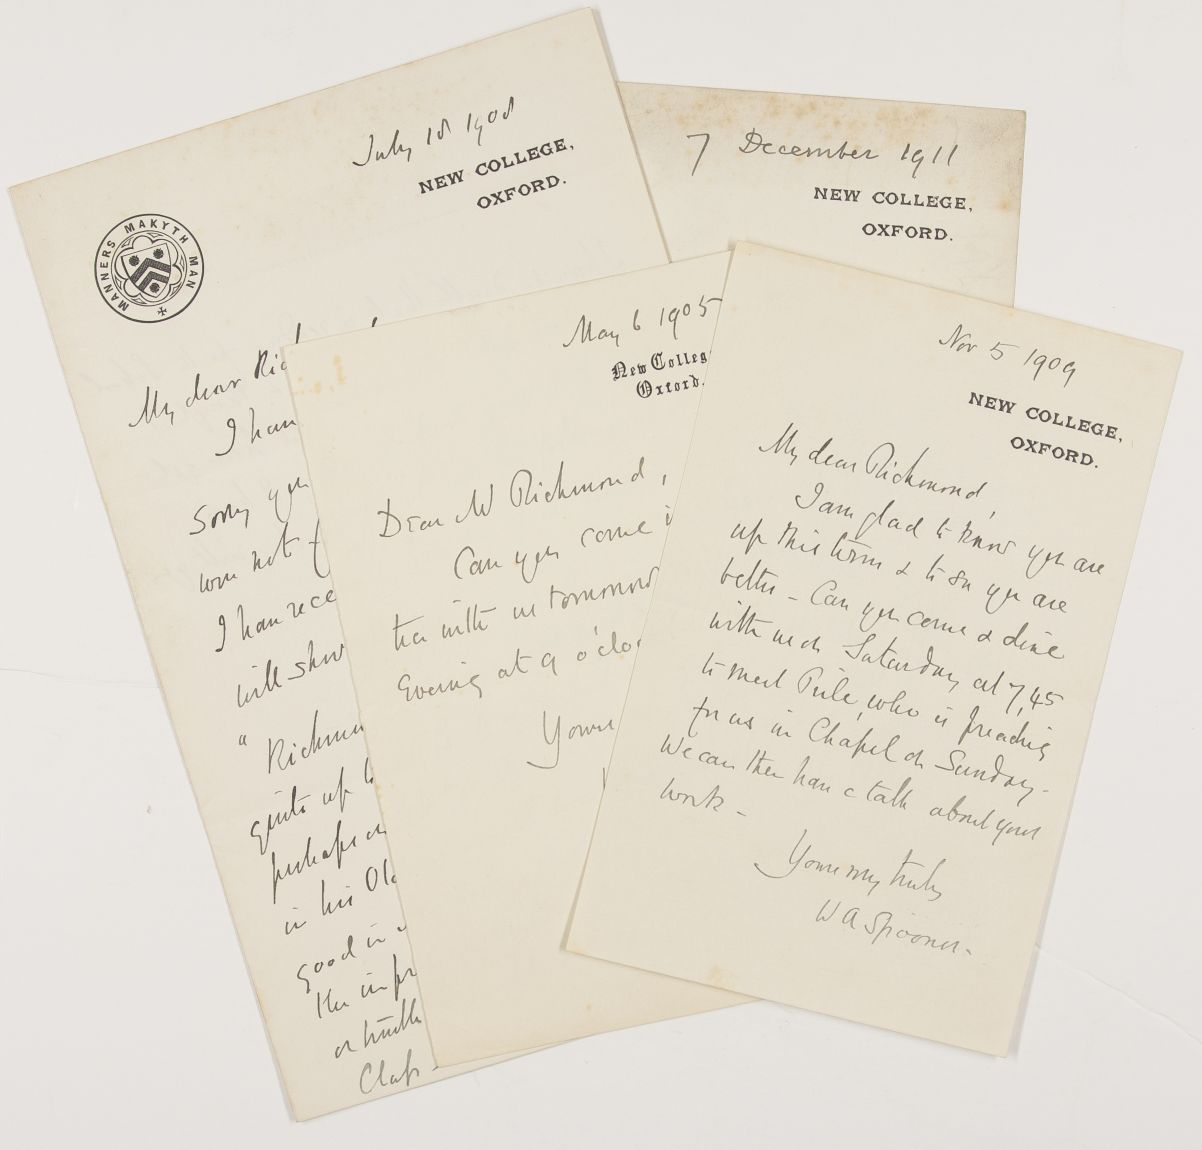 July 18 1908
NEW COLLEGE,
OXFORD.
MANNERS MAKYTH MAN
My dear Rich
I have
sorry you
were not
I have rece
will show
" Richmon
quite up to
perhaps on
in his Old
good in
the impr
or trouble
Class -
7 December 1911
NEW COLLEGE,
OXFORD.
May 6 1905
New Colleg
Oxford.
Dear Mr Richmond,
Can you come i
tea with us tomorrow
Evening at 9 o'cloc
Yours
Nov 5 1909
NEW COLLEGE,
OXFORD.
My dear Richmond,
I am glad to know you are
up this term & to see you are
better - Can you come & dine
with us on Saturday at 7,45
to meet Peile, who is preaching
for us in Chapel on Sunday -
We can then have a talk about your
work -
Yours very truly
W A Spooner -